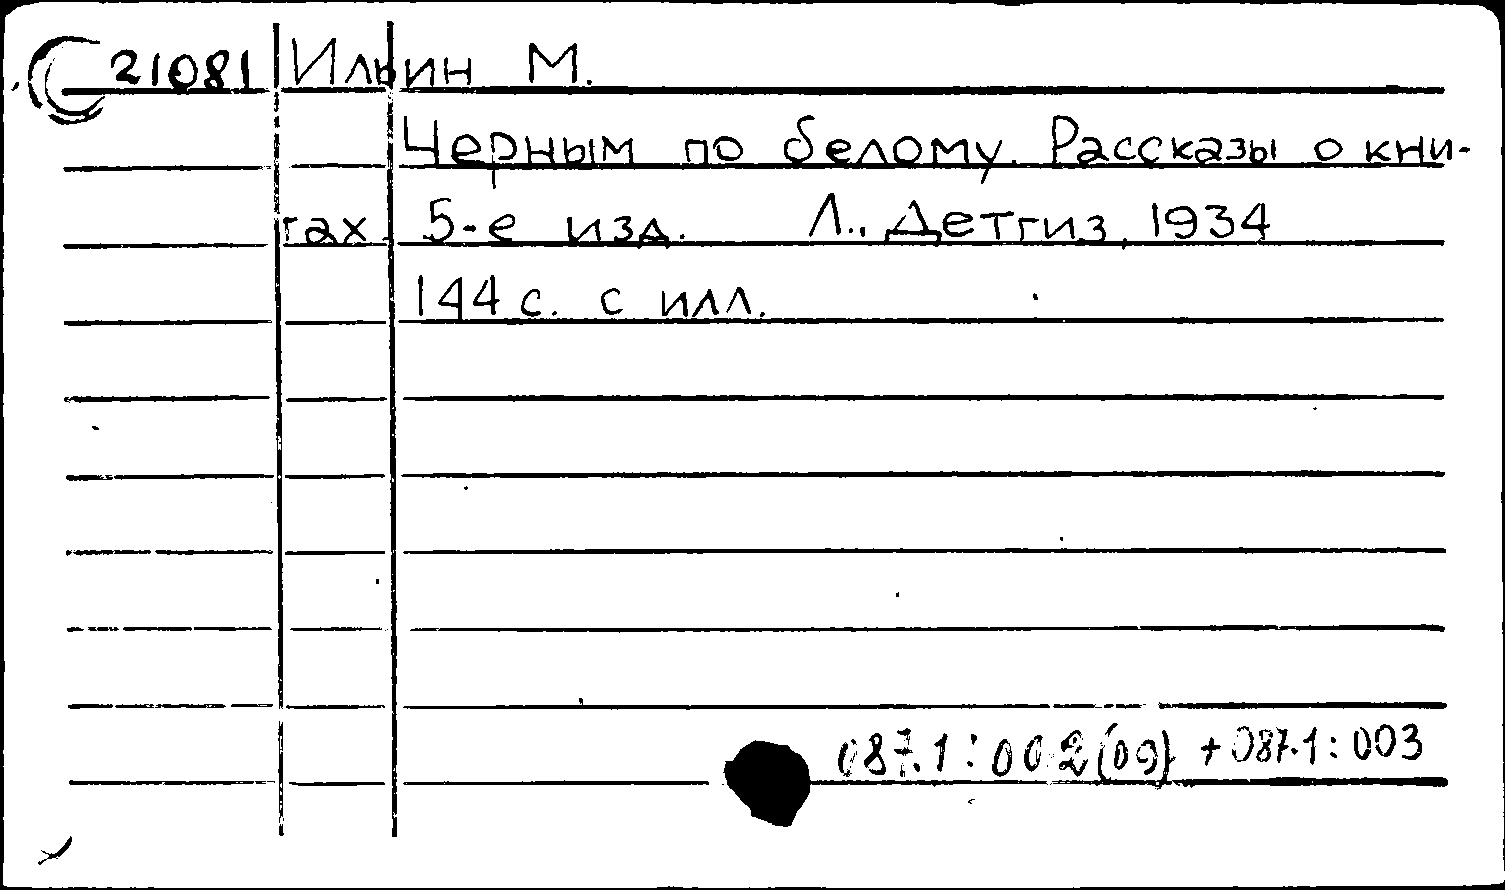 21081 Ильин М.
Черным по белому. Рассказы о кни-
гах. 5-е изд. Л., Детгиз, 1934
144 с. с илл.
087.1:002(09) + 087.1:003